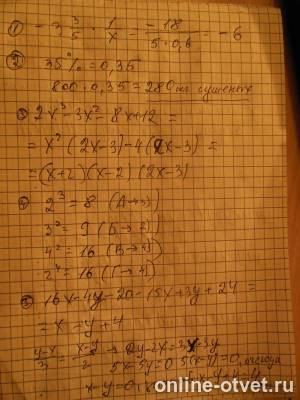 ① -3 3/5 · 1/x = -18/(5·0,6) = -6
② 35% = 0,35
800 · 0,35 = 280 кг сушеных
③ 2x³ - 3x² - 8x + 12 =
= x²(2x-3) - 4(2x-3) =
= (x+2)(x-2)(2x-3)
④ 2³ = 8 (А→3)
3² = 9 (Б→2)
4² = 16 (В→4)
2⁴ = 16 (Г→4)
⑤ 16x - 4y - 20 - 15x + 3y + 24 =
= x - y + 4
(y-x)/3 = (x-y)/2 → 2y-2x=3x-3y
5x-5y=0 5(x-y)=0, отсюда
x-y=0,
online-otvet.ru